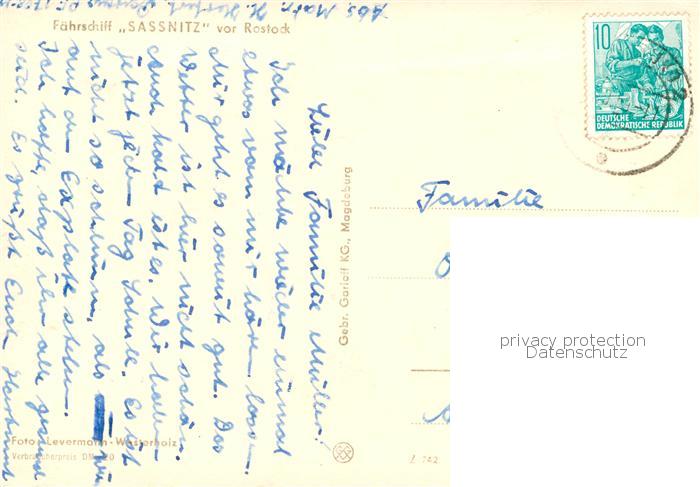 Abs. Matr. H.
Fährschiff „SASSNITZ" vor Rostock
Liebe Familie Müller!
Ich möchte wieder einmal
etwas von mir hören lassen.
Mir geht es soweit gut. Das
Wetter ist hier nicht schön.
Auch kalt ist es. Wir haben
jetzt jeden Tag Schule. Es ist
nicht so schlimm, als wir
auf dem Explatz stehen.
Ich hoffe, daß ihr alle gesund
seid. Es grüßt Euch Hartmut
Foto: Levermann-Westerholz
Verbraucherpreis DM 20
Gebr. Garloff KG., Magdeburg
L 742
10
DEUTSCHE
DEMOKRATISCHE REPUBLIK
Familie
privacy protection
Datenschutz